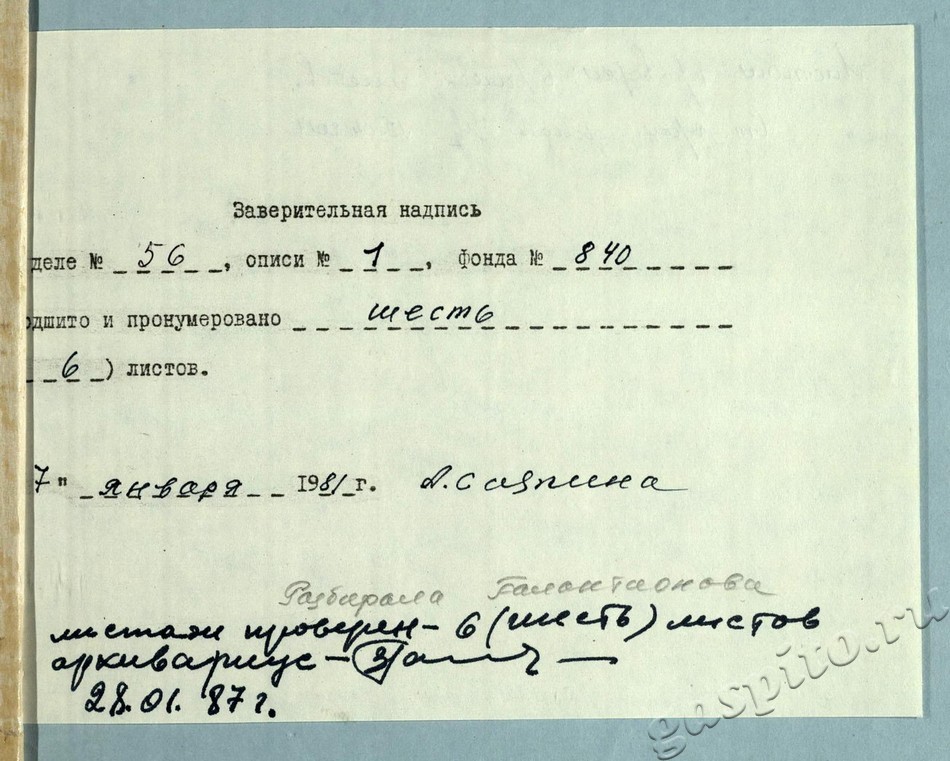 Заверительная надпись
деле № 56, описи № 1, фонда № 840
одшито и пронумеровано шесть
6) листов.
7" января 1981 г.
Разбирала Галактионова
листаж проверен - 6 (шесть) листов
архивариус -
28.01.87 г.
gaspito.ru